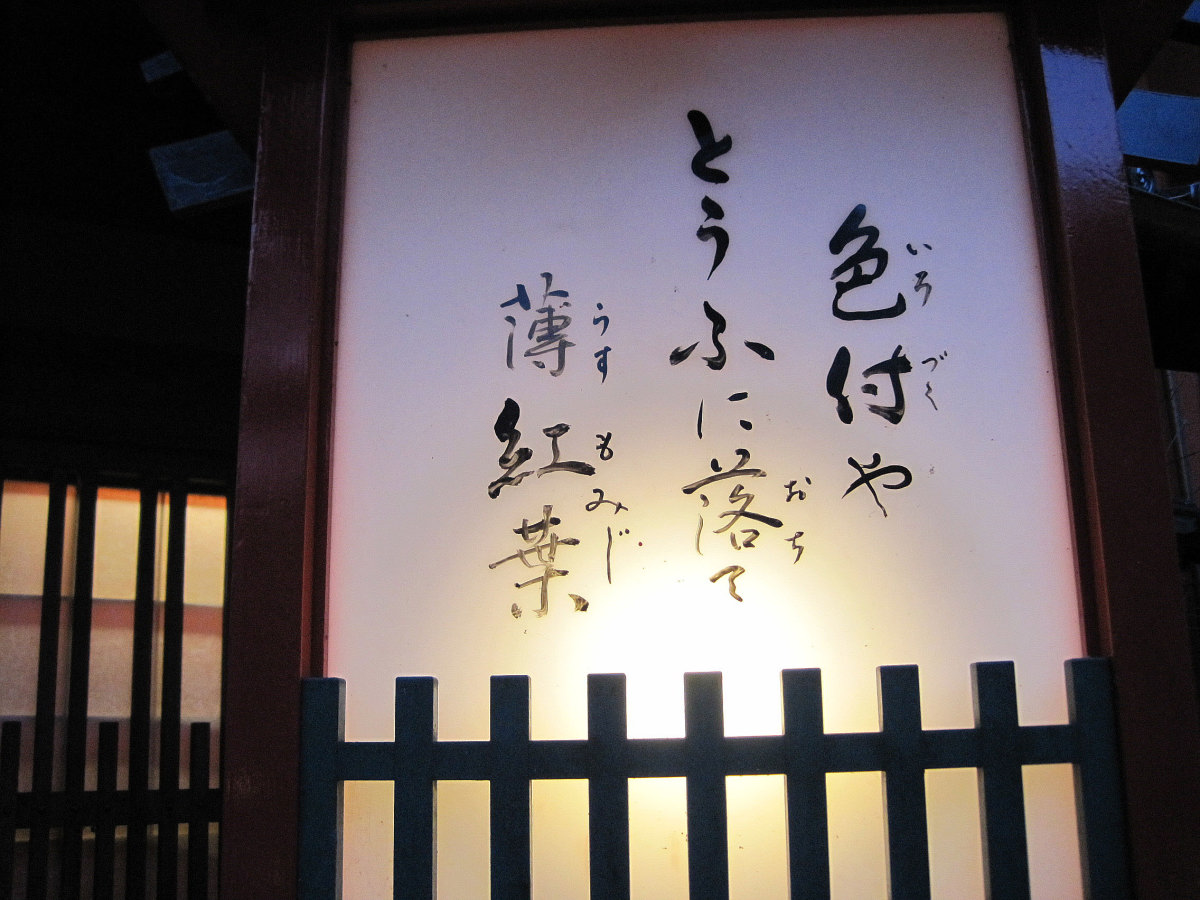 色付や
いろづく
とうふに落て
おち
薄紅葉
うすもみじ